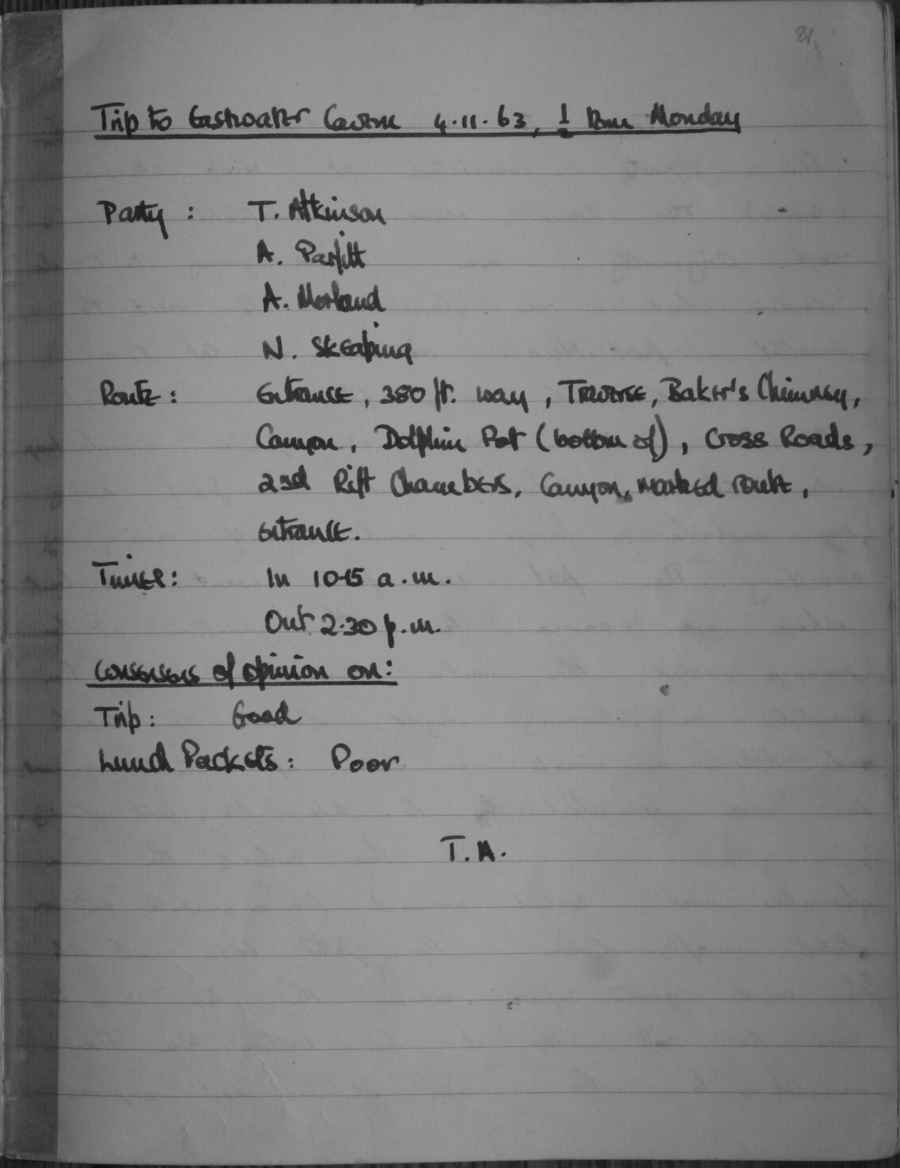 81.
Trip to Eastwater Cavern 4.11.63, ½ Term Monday
Party : T. Atkinson
A. Parfitt
A. Morland
N. Skeaping
Route : Entrance, 380 ft. way, Traverse, Baker's Chimney,
Canyon, Dolphin Pot (bottom of), Cross Roads,
2nd Rift Chambers, Canyon, marked route,
entrance.
Times : In 10-15 a.m.
Out 2.30 p.m.
Consensus of opinion on:
Trip : Good
Lunch Packets : Poor
T.A.